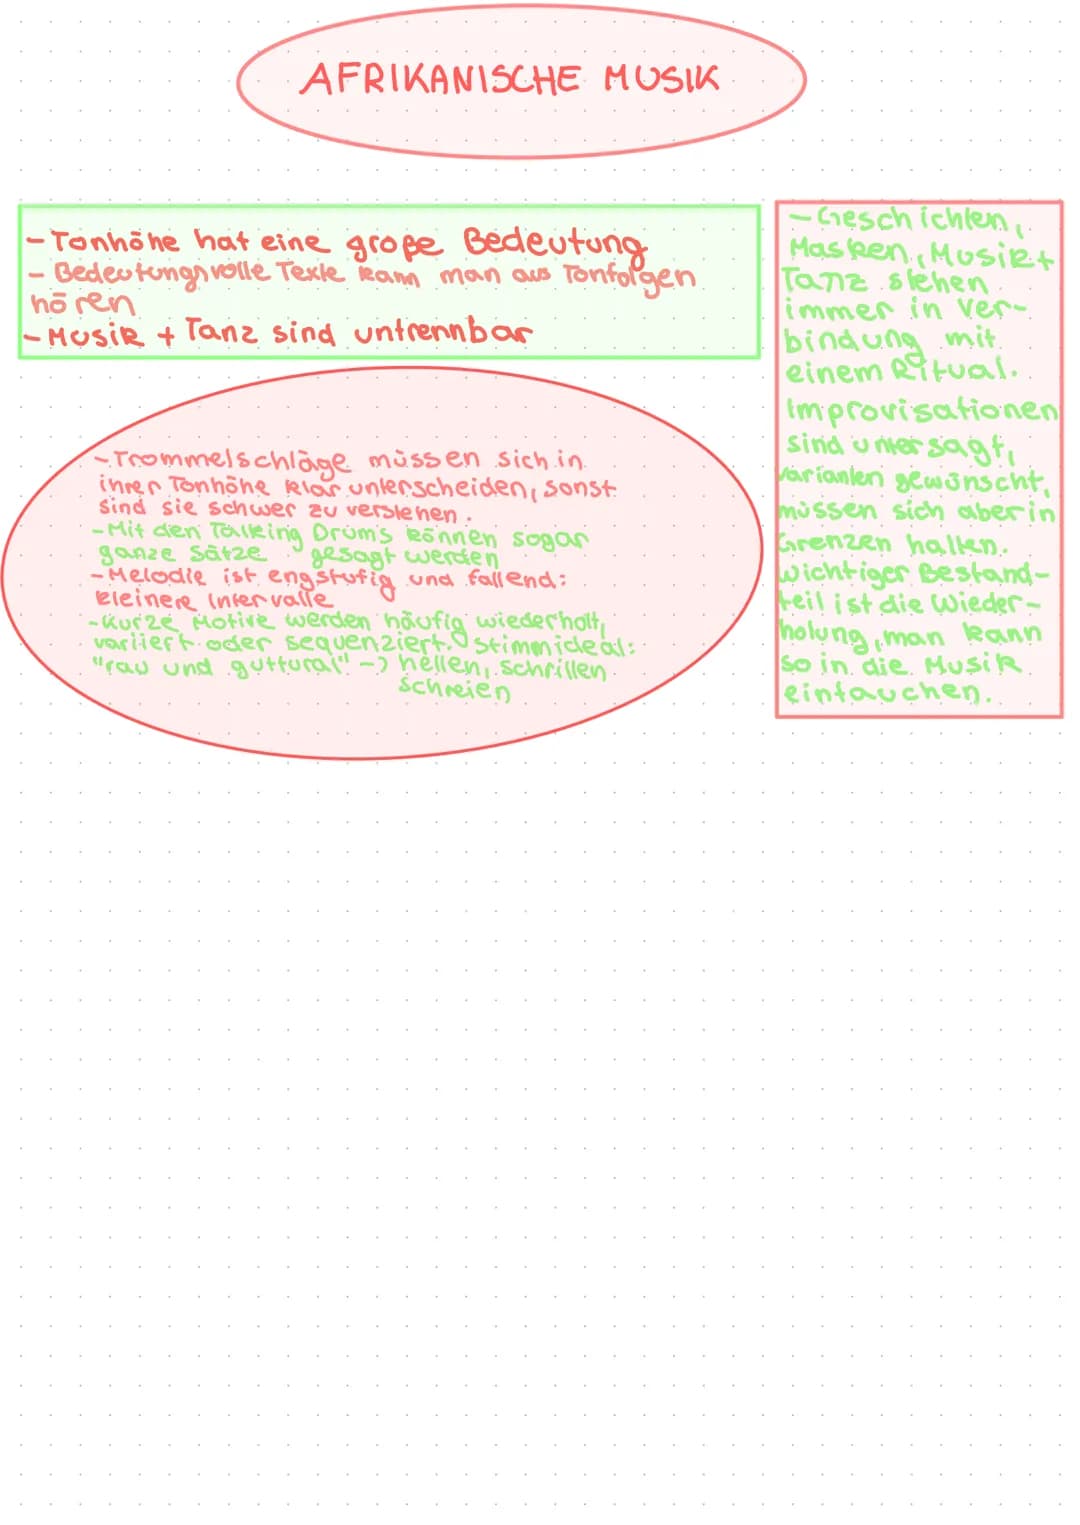 AFRIKANISCHE MUSIK
- Tonhöhe hat eine große Bedeutung
- Bedeutungsvolle Texte kann man aus Tonfolgen
hören
- Musik + Tanz sind untrennbar
- Trommelschläge müssen sich in
ihrer Tonhöhe klar unterscheiden, sonst
sind sie schwer zu verstehen.
- Mit den Talking Drums können sogar
ganze Sätze gesagt werden
- Melodie ist engstufig und fallend:
kleinere Intervalle
- Kurze Motive werden häufig wiederholt,
variiert oder sequenziert. Stimmideal:
"rau und guttural" -> hellen, schrillen
schreien
- Geschichten,
Masken, Musik +
Tanz stehen
immer in Ver-
bindung mit
einem Ritual.
Improvisationen
sind untersagt,
Varianten gewünscht,
müssen sich aber in
Grenzen halten.
Wichtiger Bestand-
teil ist die Wieder-
holung, man kann
so in die Musik
eintauchen.